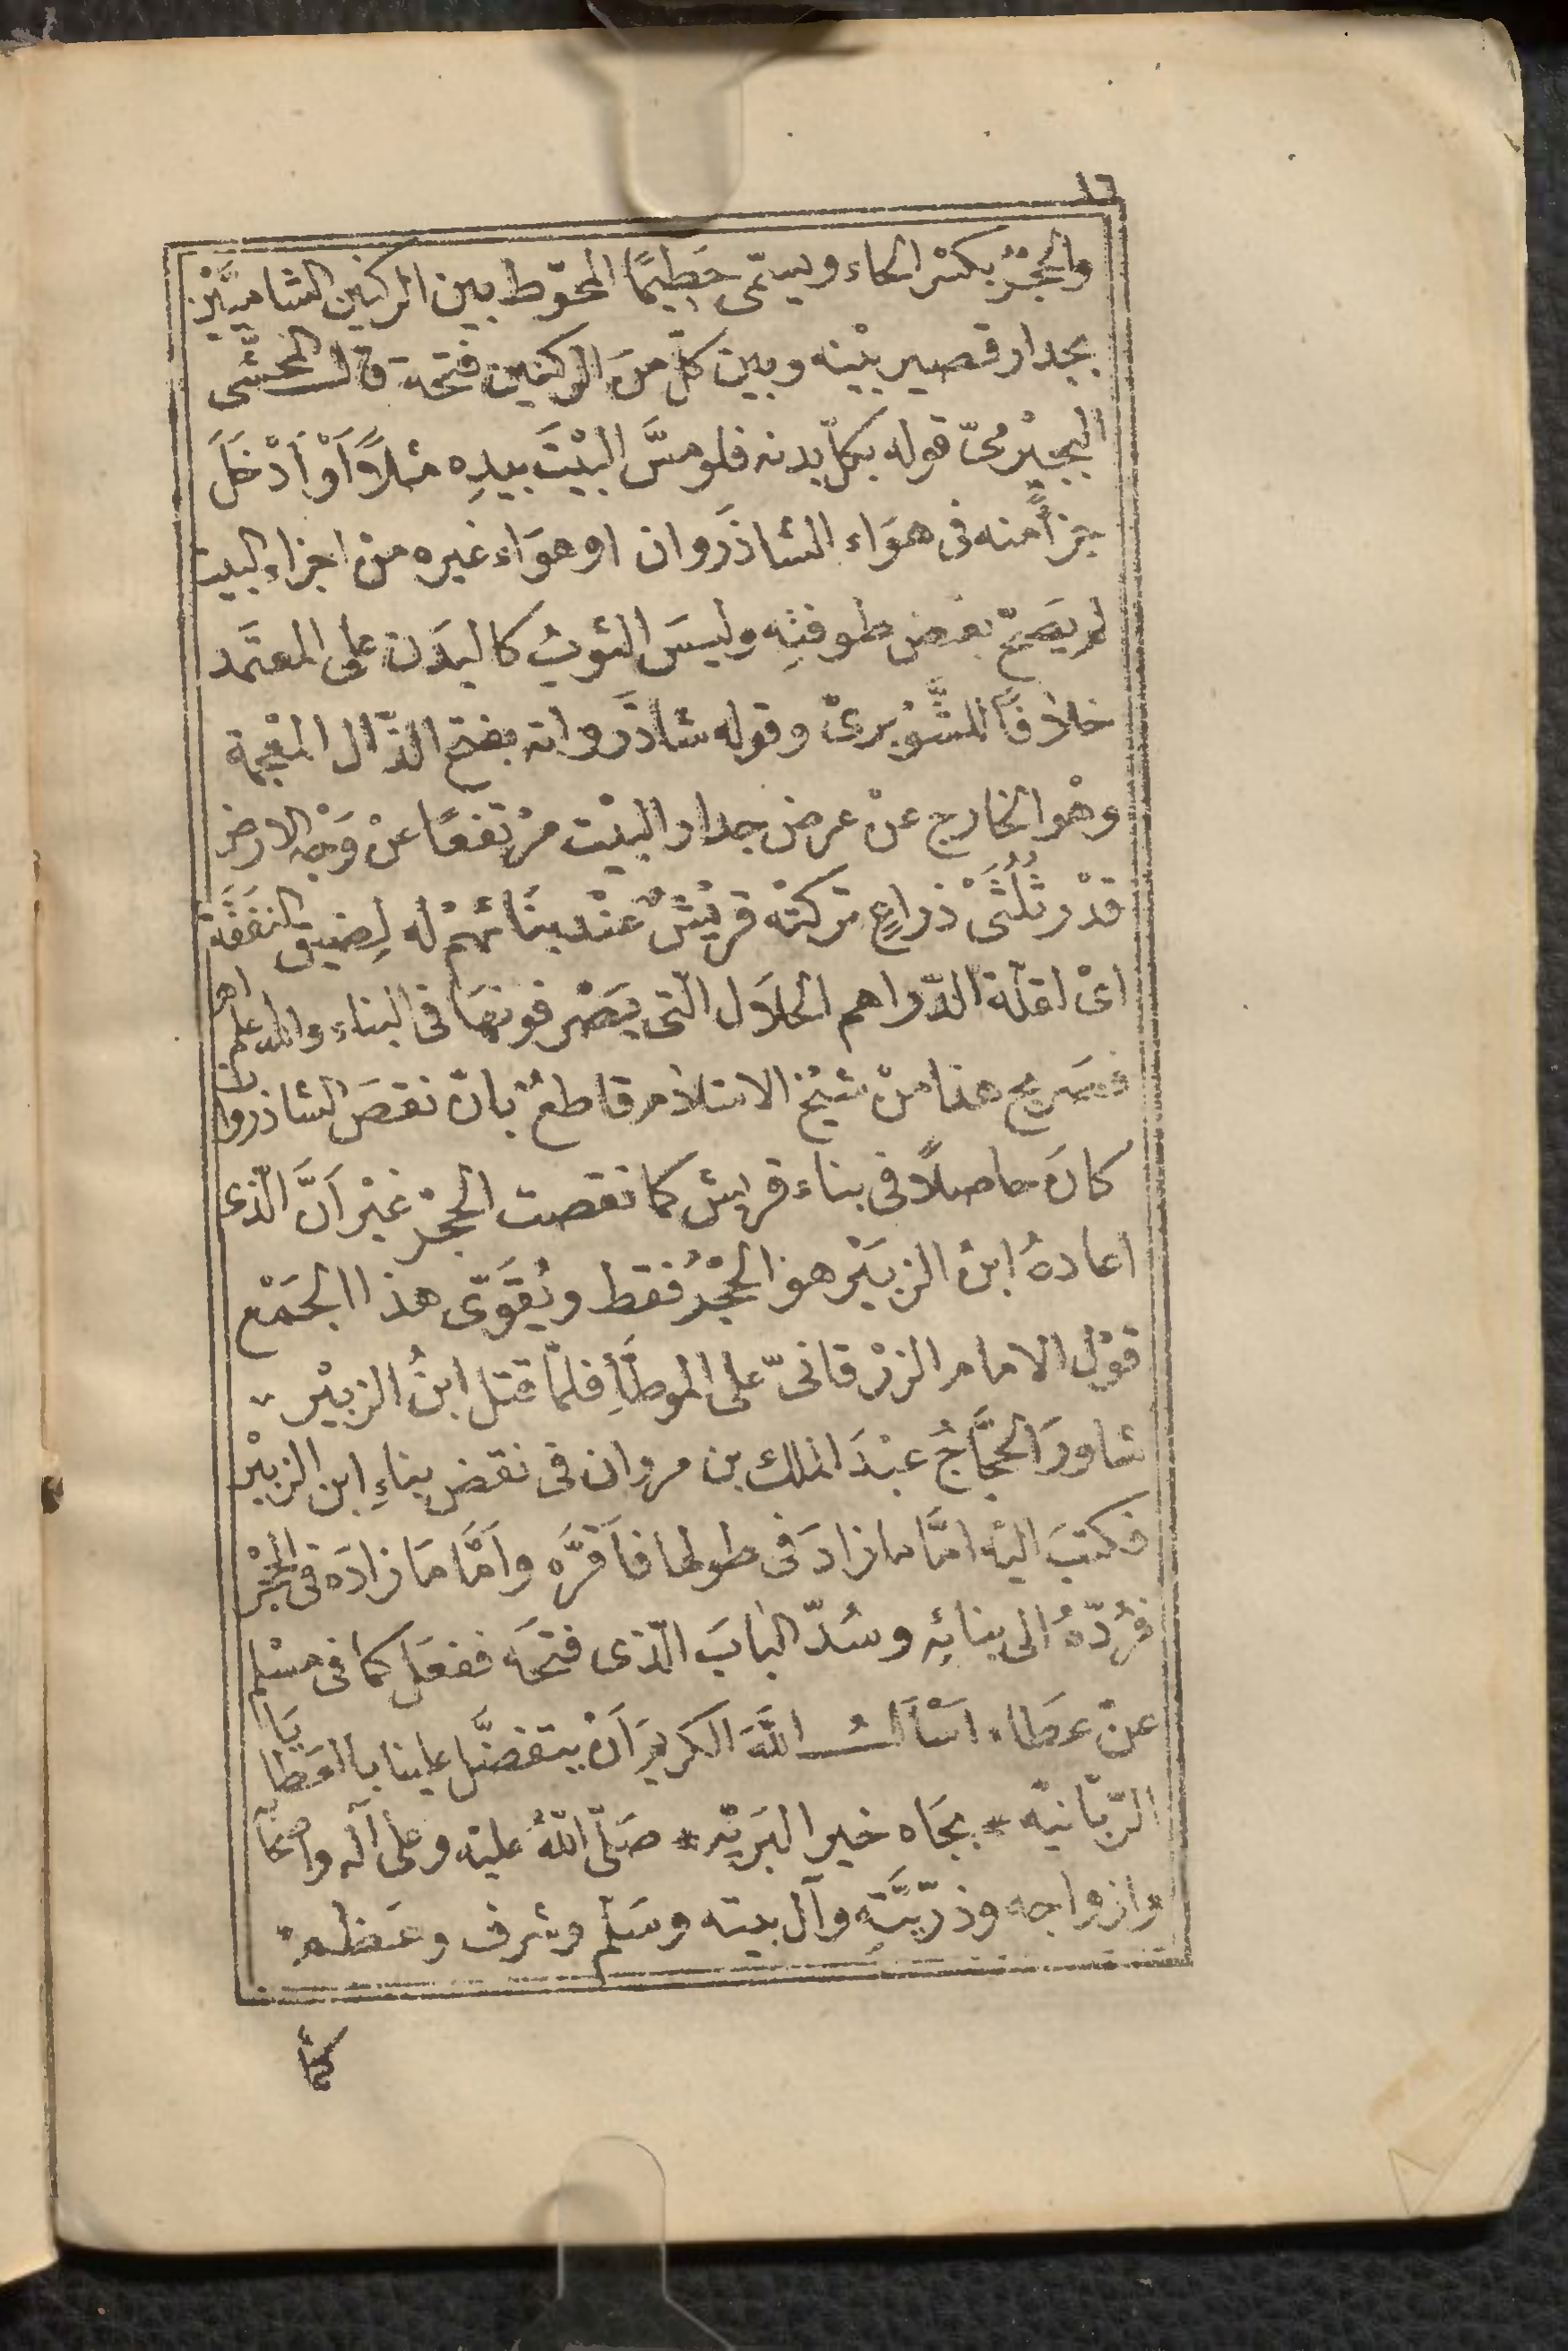 ١٦
والحِجْرُ بكسْر الحاء ويسمّى حَطِيمًا المحوّط بين الركنين الشاميَّيْن
بجدار قصير بيْنه وبين كلّ منَ الركنين فتحة قال المحشّى
البجيْرمىّ قوله بكلّ بدنه فلو مسَّ البيْتَ بيدِه مثلاً أوْ أدْخَلَ
جزأً منه فى هوَاء الشاذَروان او هوَاء غيره منْ اجزاء البيت
لم يَصحّ بعْض طوفتِه وليسَ الثوبُ كالبدَن على المعتَمد
خلافًا للشَّوْبرىّ وقوله شاذَروانه بفتح الذّال المعْجمة
وهْو الخارج عنْ عرض جدار البيْت مرْتفعًا عنْ وَجْه الارض
قدْر ثُلُثَىْ ذراعٍ تركتْه قريْشٌ عنْد بنَائهمْ له لِضيق النفَقَة
اىْ لقلّة الدّراهم الحلاَل الّتى يَصْرفونهَا فى البناء والله اعلم اه
فصَريح هذا منْ شيْخ الاسْلام قاطعٌ بانّ نقصَ الشاذروان
كانَ حاصلاً فى بناء قريش كما نقصت الحِجْر غيْر اَنَّ الّذى
اعادهُ ابنُ الزبيْر هو الحِجْرُ فقط ويُقَوّى هذا الجَمْع
قوْل الامام الزرْقانىّ على الموطَّأِ فلمّا قتل ابنُ الزبيْر
شاورَ الحجَّاجُ عبْدَ الملك بن مروان فى نقض بناءِ ابن الزبيْر
فكتبَ اليْه امَّا ما زادَ فى طولها فأقرَّه وأمَّا مَا زادَه فى الحِجْر
فرُدّهُ الى بنائِه وسُدّ البابَ الّذى فتحَه ففعَل كما فى مسْلم
عنْ عطاء، اسْألُ اللّهَ الكريمَ أنْ يتفضَّل علينا بالعَطايَا
الرّبّانيّه * بجَاه خير البَريّه * صَلّى اللّهُ عليْه وعلى آله واصحابه
وازواجه وذرّيَّتِه وآل بيته وسَلّم وشرف وعَظم
كمَّا